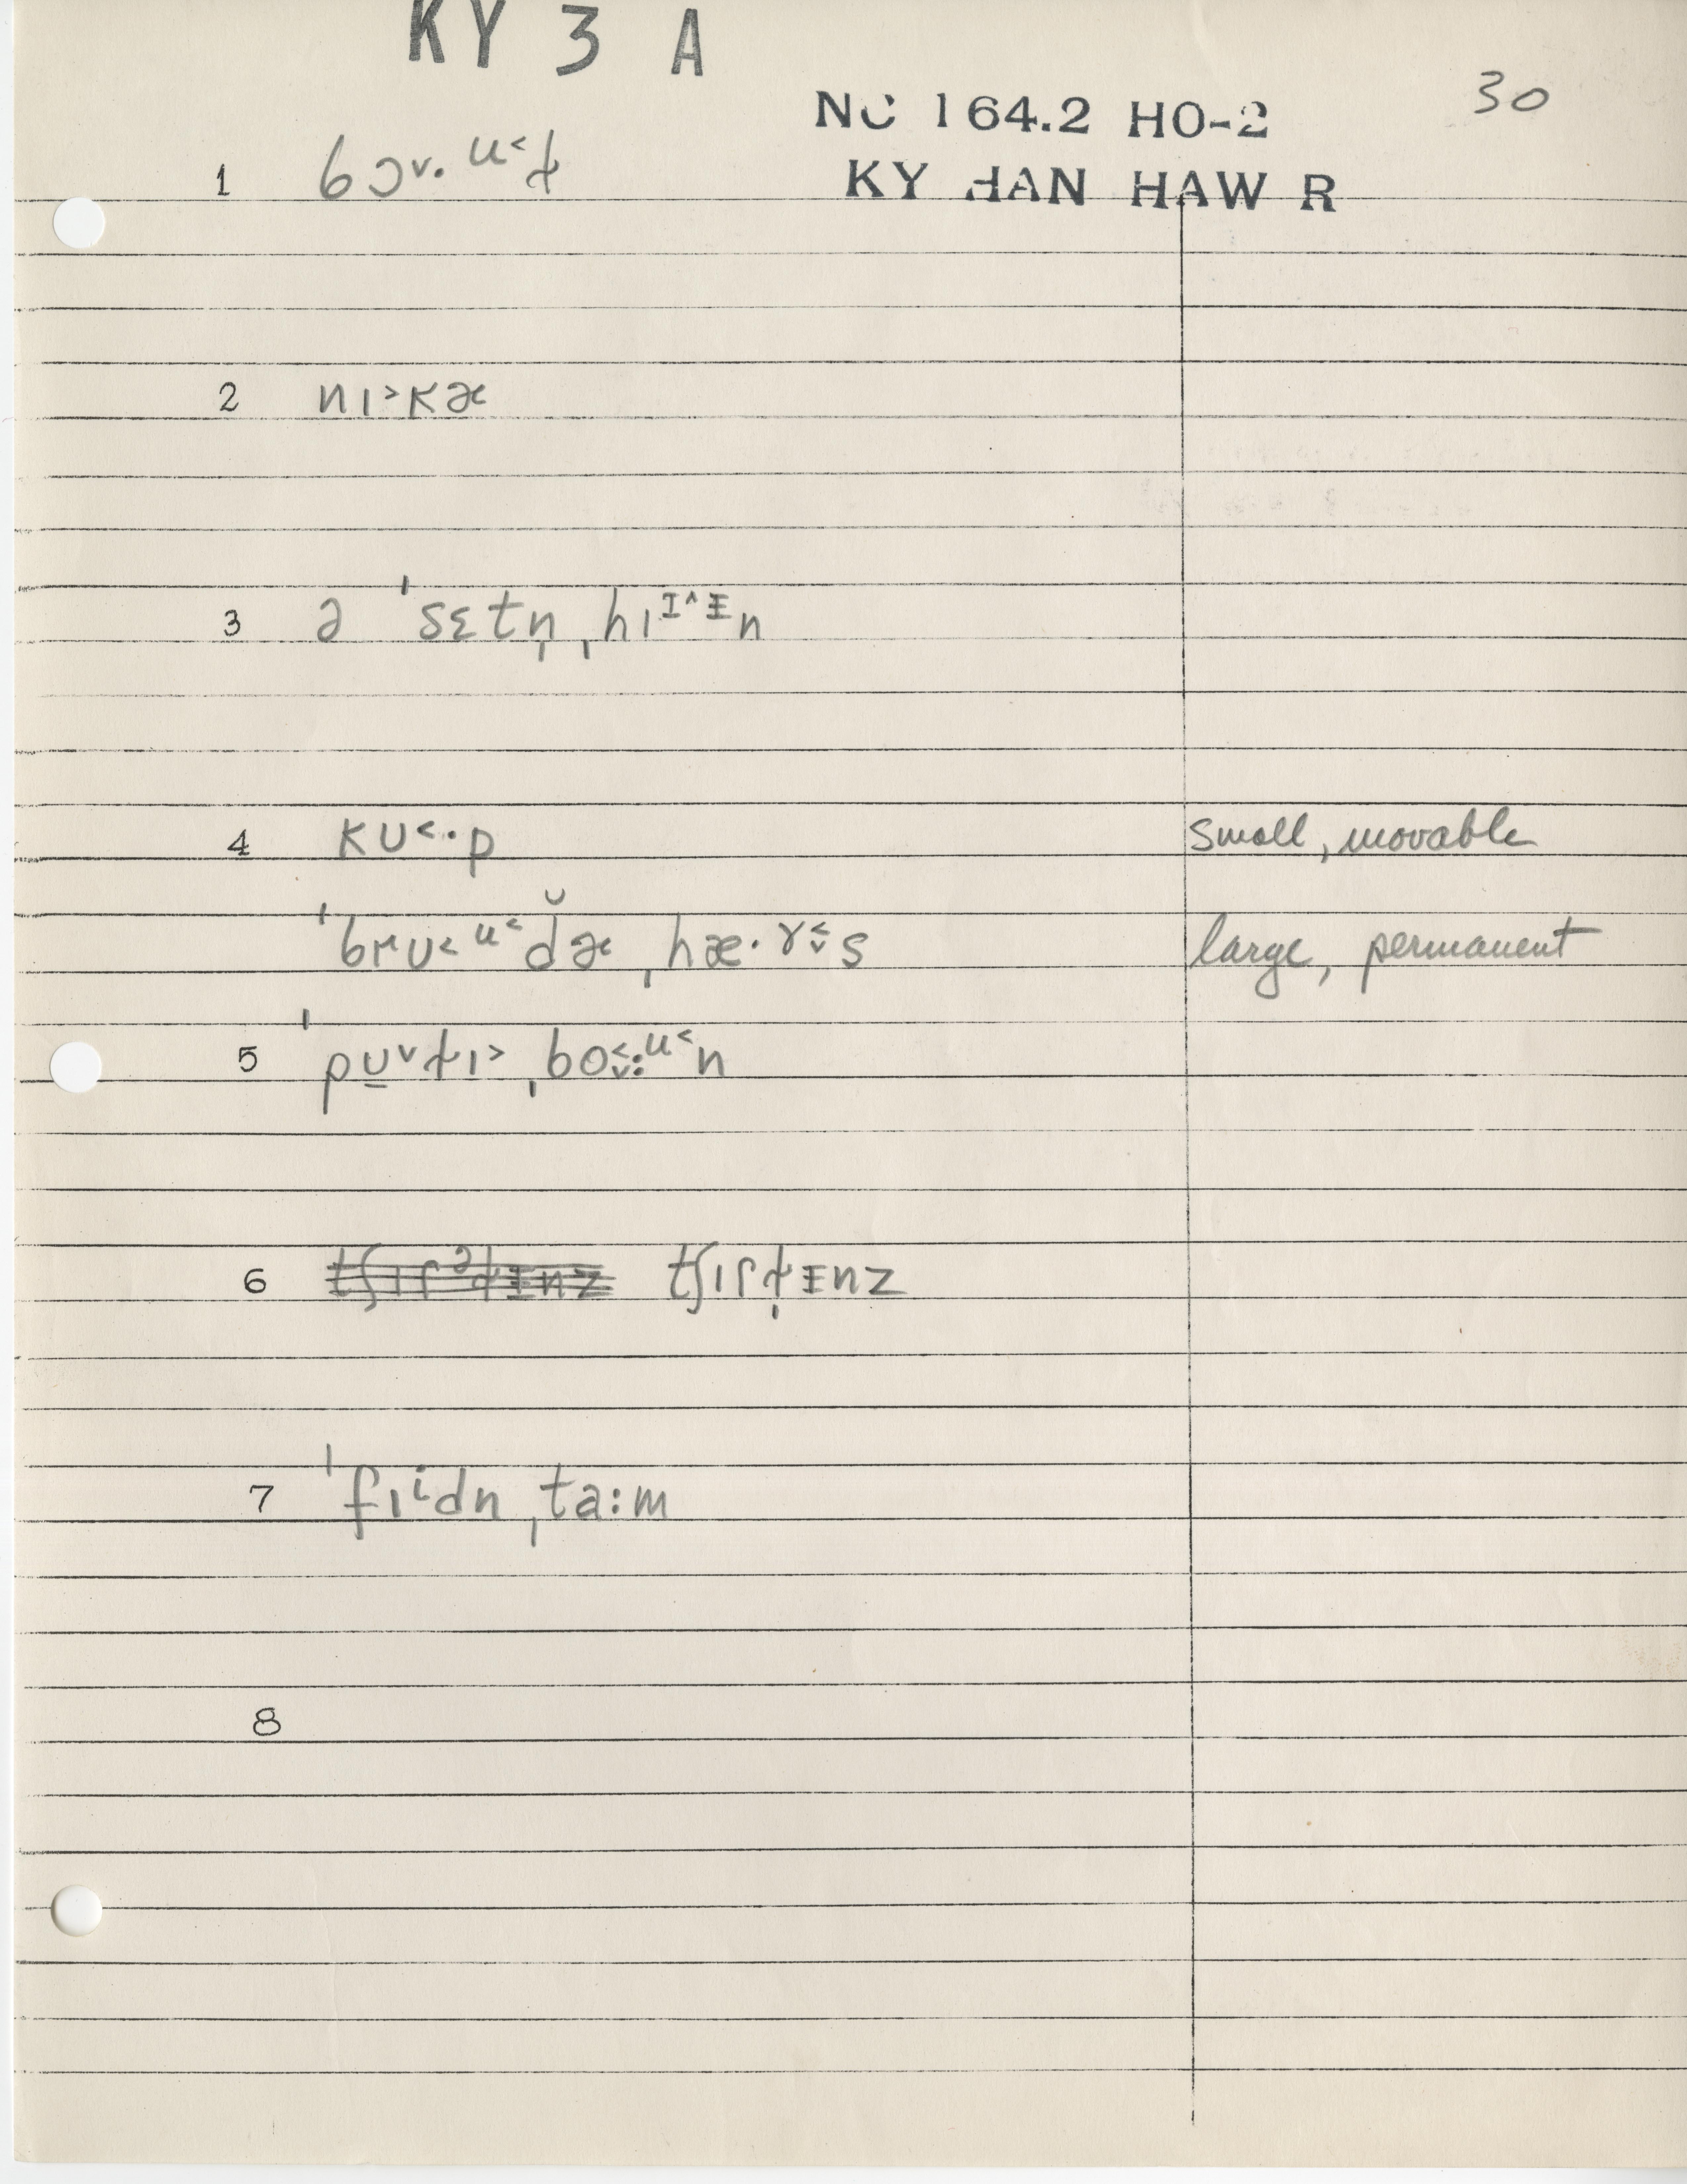 KY 3 A
30
NC 164.2 HO-2
KY HAN HAW R
1 bɔ˅· ᵘ˂ɫ
2 nɪ˃kɚ
3 ə ˈsɛtn̩ ˌhɪᴵ^ᵻn
4 kᴜ˂·p small, movable
ˈbrᴜ˂ ᵘ˂d̆ɚ ˌhæ·ɤ˂˅s large, permanent
5 ˈpᴜ̱˅ɫɪ˃ ˌbo˂˅:ᵘ˂n
6 tʃɪɾᵊɫᵻnz tʃɪɾɫ̩ᵻnz
7 ˈfɪⁱdn ˌta:m
8